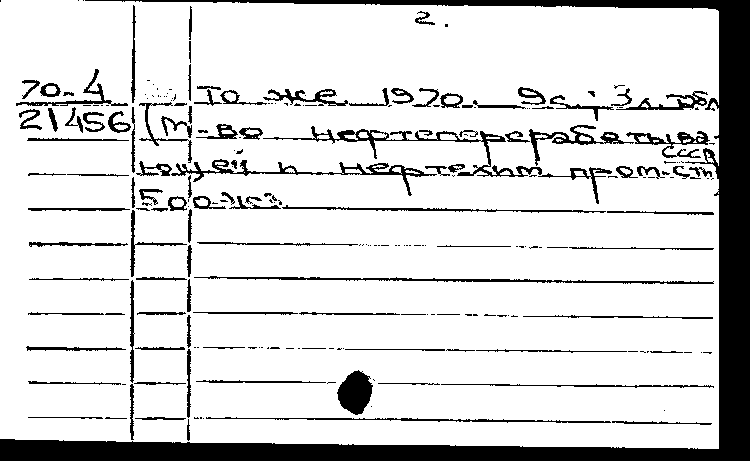 2.
70-4 То же. 1970. 9с.; 3 л. табл
21456 (М-во нефтеперерабатыва-
ющей и нефтехим. пром-сти СССР)
500 экз.